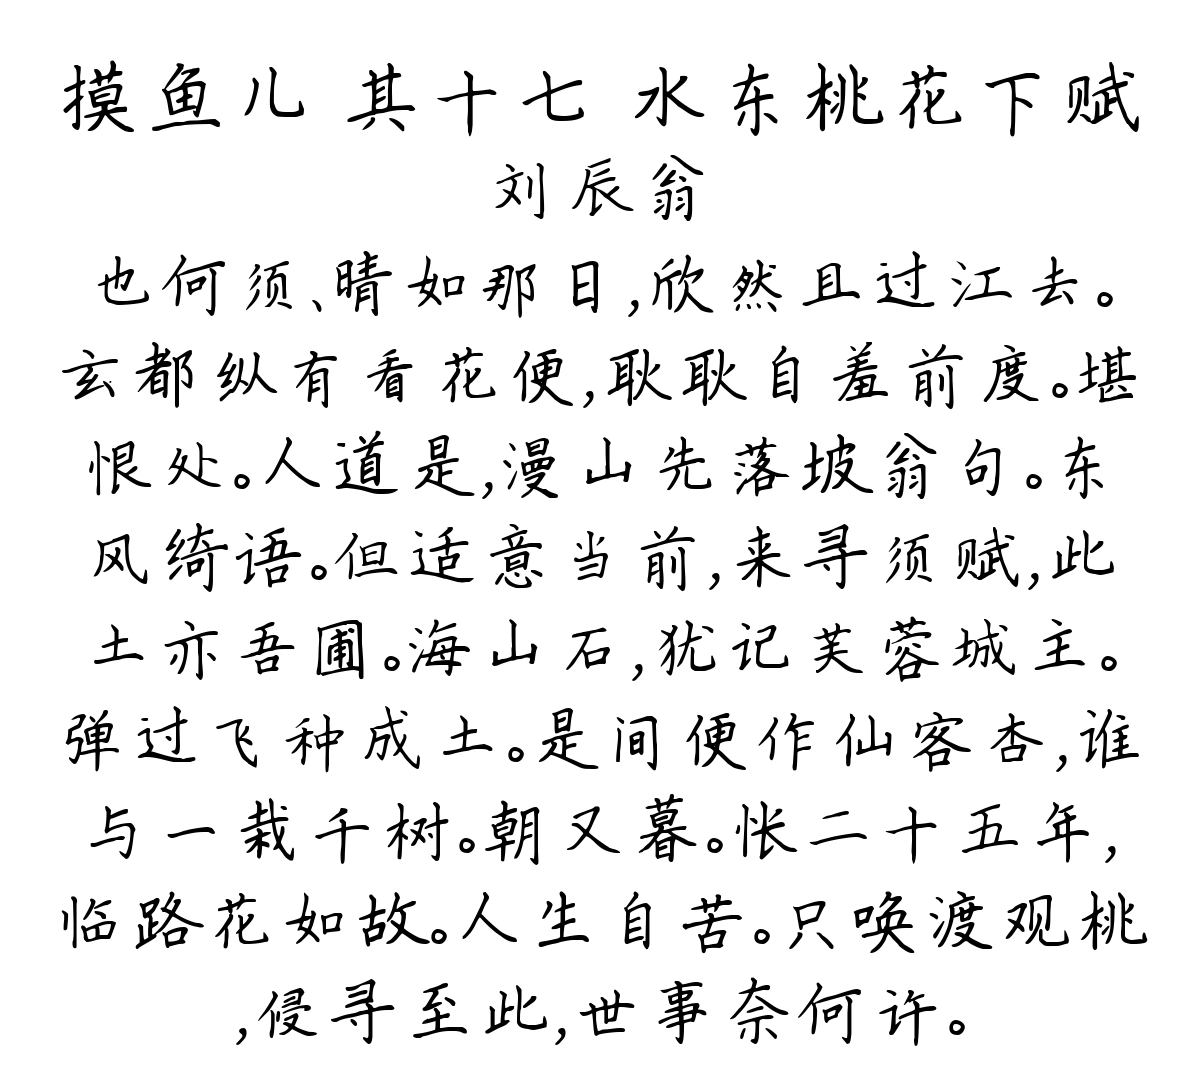 摸鱼儿 其十七 水东桃花下赋
刘辰翁
也何须、晴如那日,欣然且过江去。
玄都纵有看花便,耿耿自羞前度。堪
恨处。人道是,漫山先落坡翁句。东
风绮语。但适意当前,来寻须赋,此
土亦吾圃。海山石,犹记芙蓉城主。
弹过飞种成土。是间便作仙客杏,谁
与一栽千树。朝又暮。怅二十五年,
临路花如故。人生自苦。只唤渡观桃
,侵寻至此,世事奈何许。